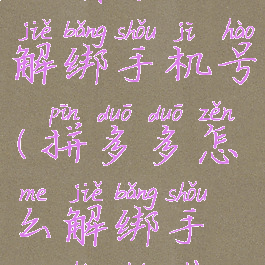 jiě bǎng shǒu jī hào
解绑手机号
pīn duō duō zěn
(拼多多怎
me jiě bǎng shǒu
么解绑手